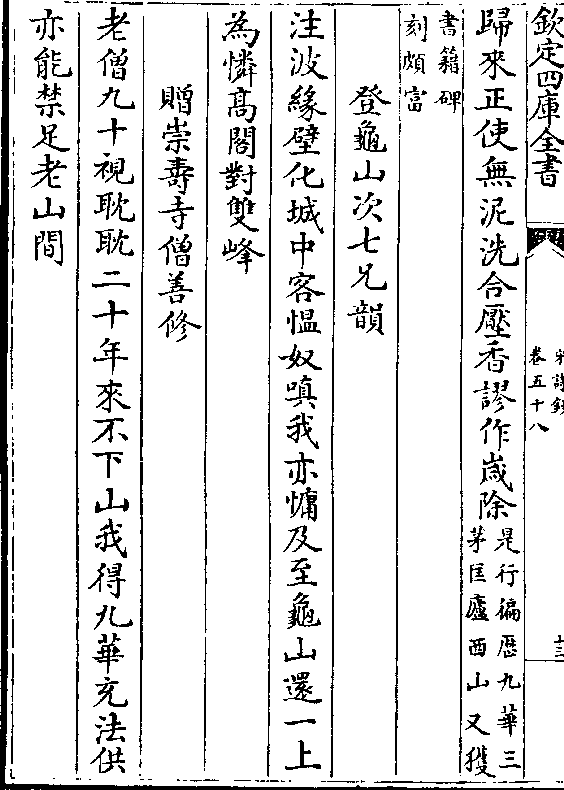 欽定四庫全書
宋詩鈔
卷五十八
十三
歸來正使無泥洗合壓香謬作歲除是行徧歴九華三
茅匡廬西山又獲
書籍碑
刻頗富
登龜山次七兄韻
注波緣壁化城中客愠奴嗔我亦慵及至龜山還一上
為憐髙閣對雙峰
贈崇壽寺僧善修
老僧九十視耽耽二十年來不下山我得九華充法供
亦能禁足老山間